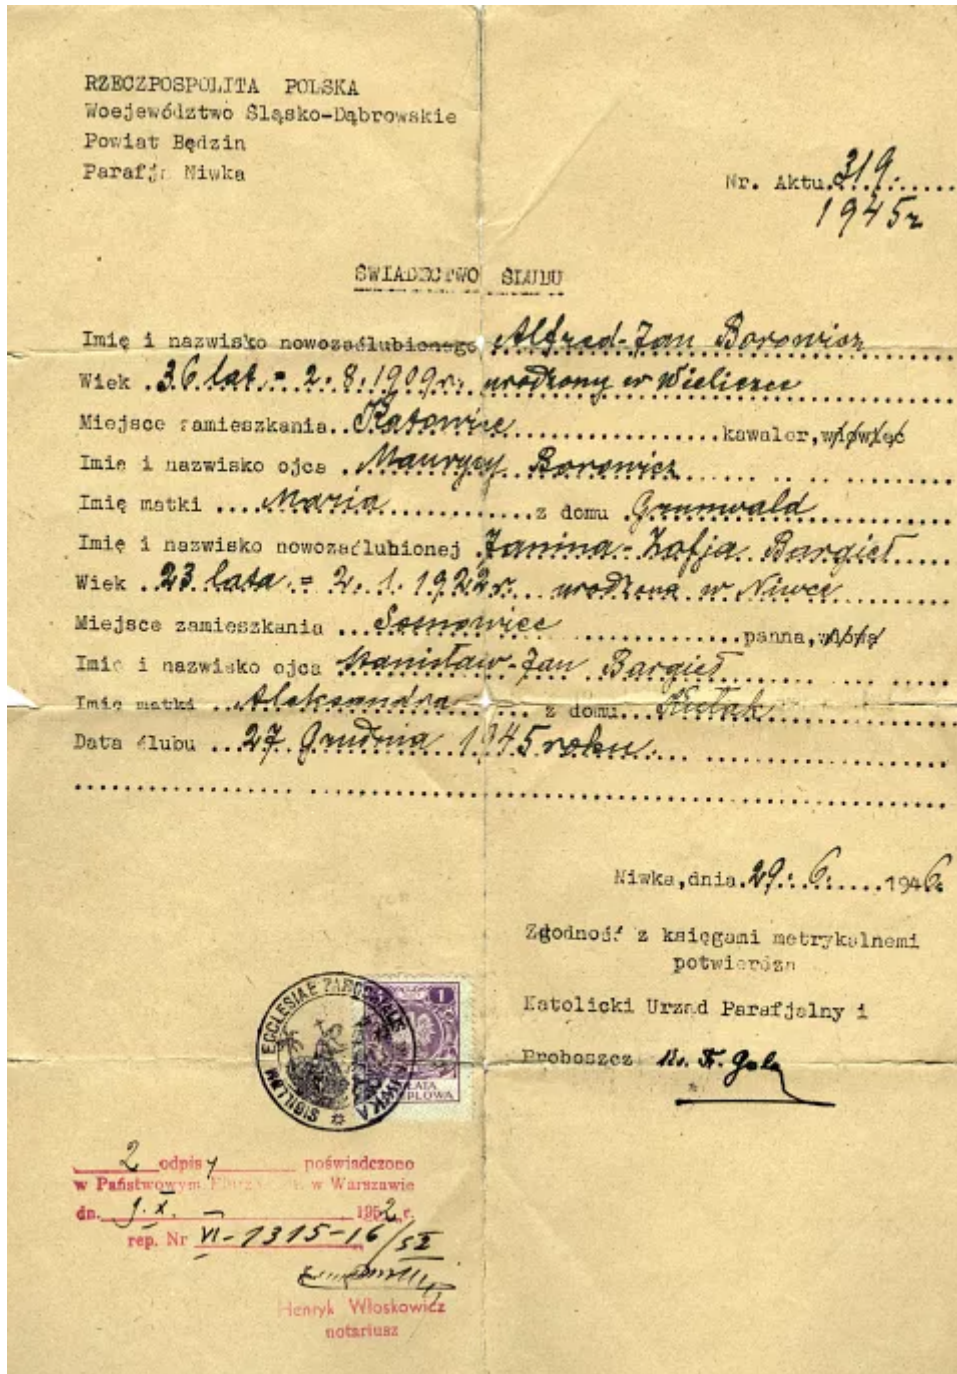 RZECZPOSPOLITA POLSKA
Woejewództwo Śląsko-Dąbrowskie
Powiat Będzin
Parafja Niwka
Nr. Aktu. 319.
1945r
ŚWIADECTWO ŚLUBU
Imię i nazwisko nowozaślubionego Alfred-Jan Borowicz
Wiek 36 lat = 2.8.1909r. urodzony w Wieliczce
Miejsce zamieszkania Katowice kawaler, wdowiec
Imię i nazwisko ojca Maurycy Borowicz
Imię matki Maria z domu Grunwald
Imię i nazwisko nowozaślubionej Janina-Zofja Bargieł
Wiek 23 lata = 2.1.1922r. urodzona w Niwce
Miejsce zamieszkania Sosnowiec panna, wdowa
Imię i nazwisko ojca Stanisław-Jan Bargieł
Imię matki Aleksandra z domu Kułak
Data ślubu 27 Grudnia 1945 roku.
Niwka, dnia. 29.6. 1946.
Zgodność z księgami metrykalnemi
potwierdza
Katolicki Urząd Parafjalny i
Proboszcz Ks. Fr. Gola
SIGILLUM ECCLESIAE PAROCHIALIS NIWKA
1
2 odpisy poświadczono
w Państwowym w Warszawie
dn. 9.X. 1952 r.
rep. Nr VI-1315-16/52
Henryk Włoskowicz
notariusz